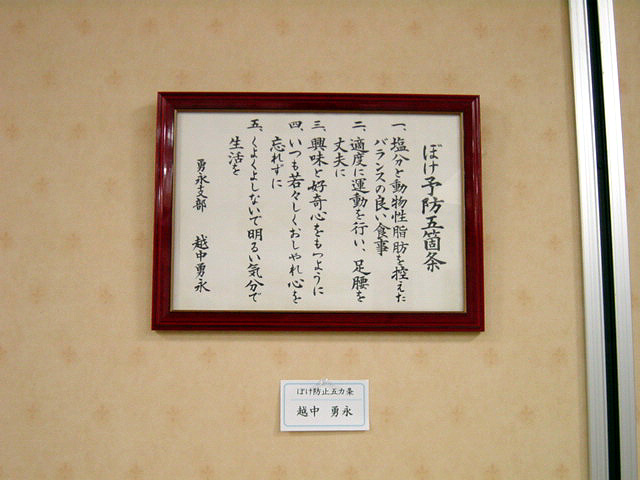 ぼけ予防五箇条
一、塩分と動物性脂肪を控えた
バランスの良い食事
二、適度に運動を行い、足腰を
丈夫に
三、興味と好奇心をもつように
四、いつも若々しくおしゃれ心を
忘れずに
五、くよくよしないで明るい気分で
生活を
勇永支部 越中勇永
ぼけ防止五カ条
越中 勇永